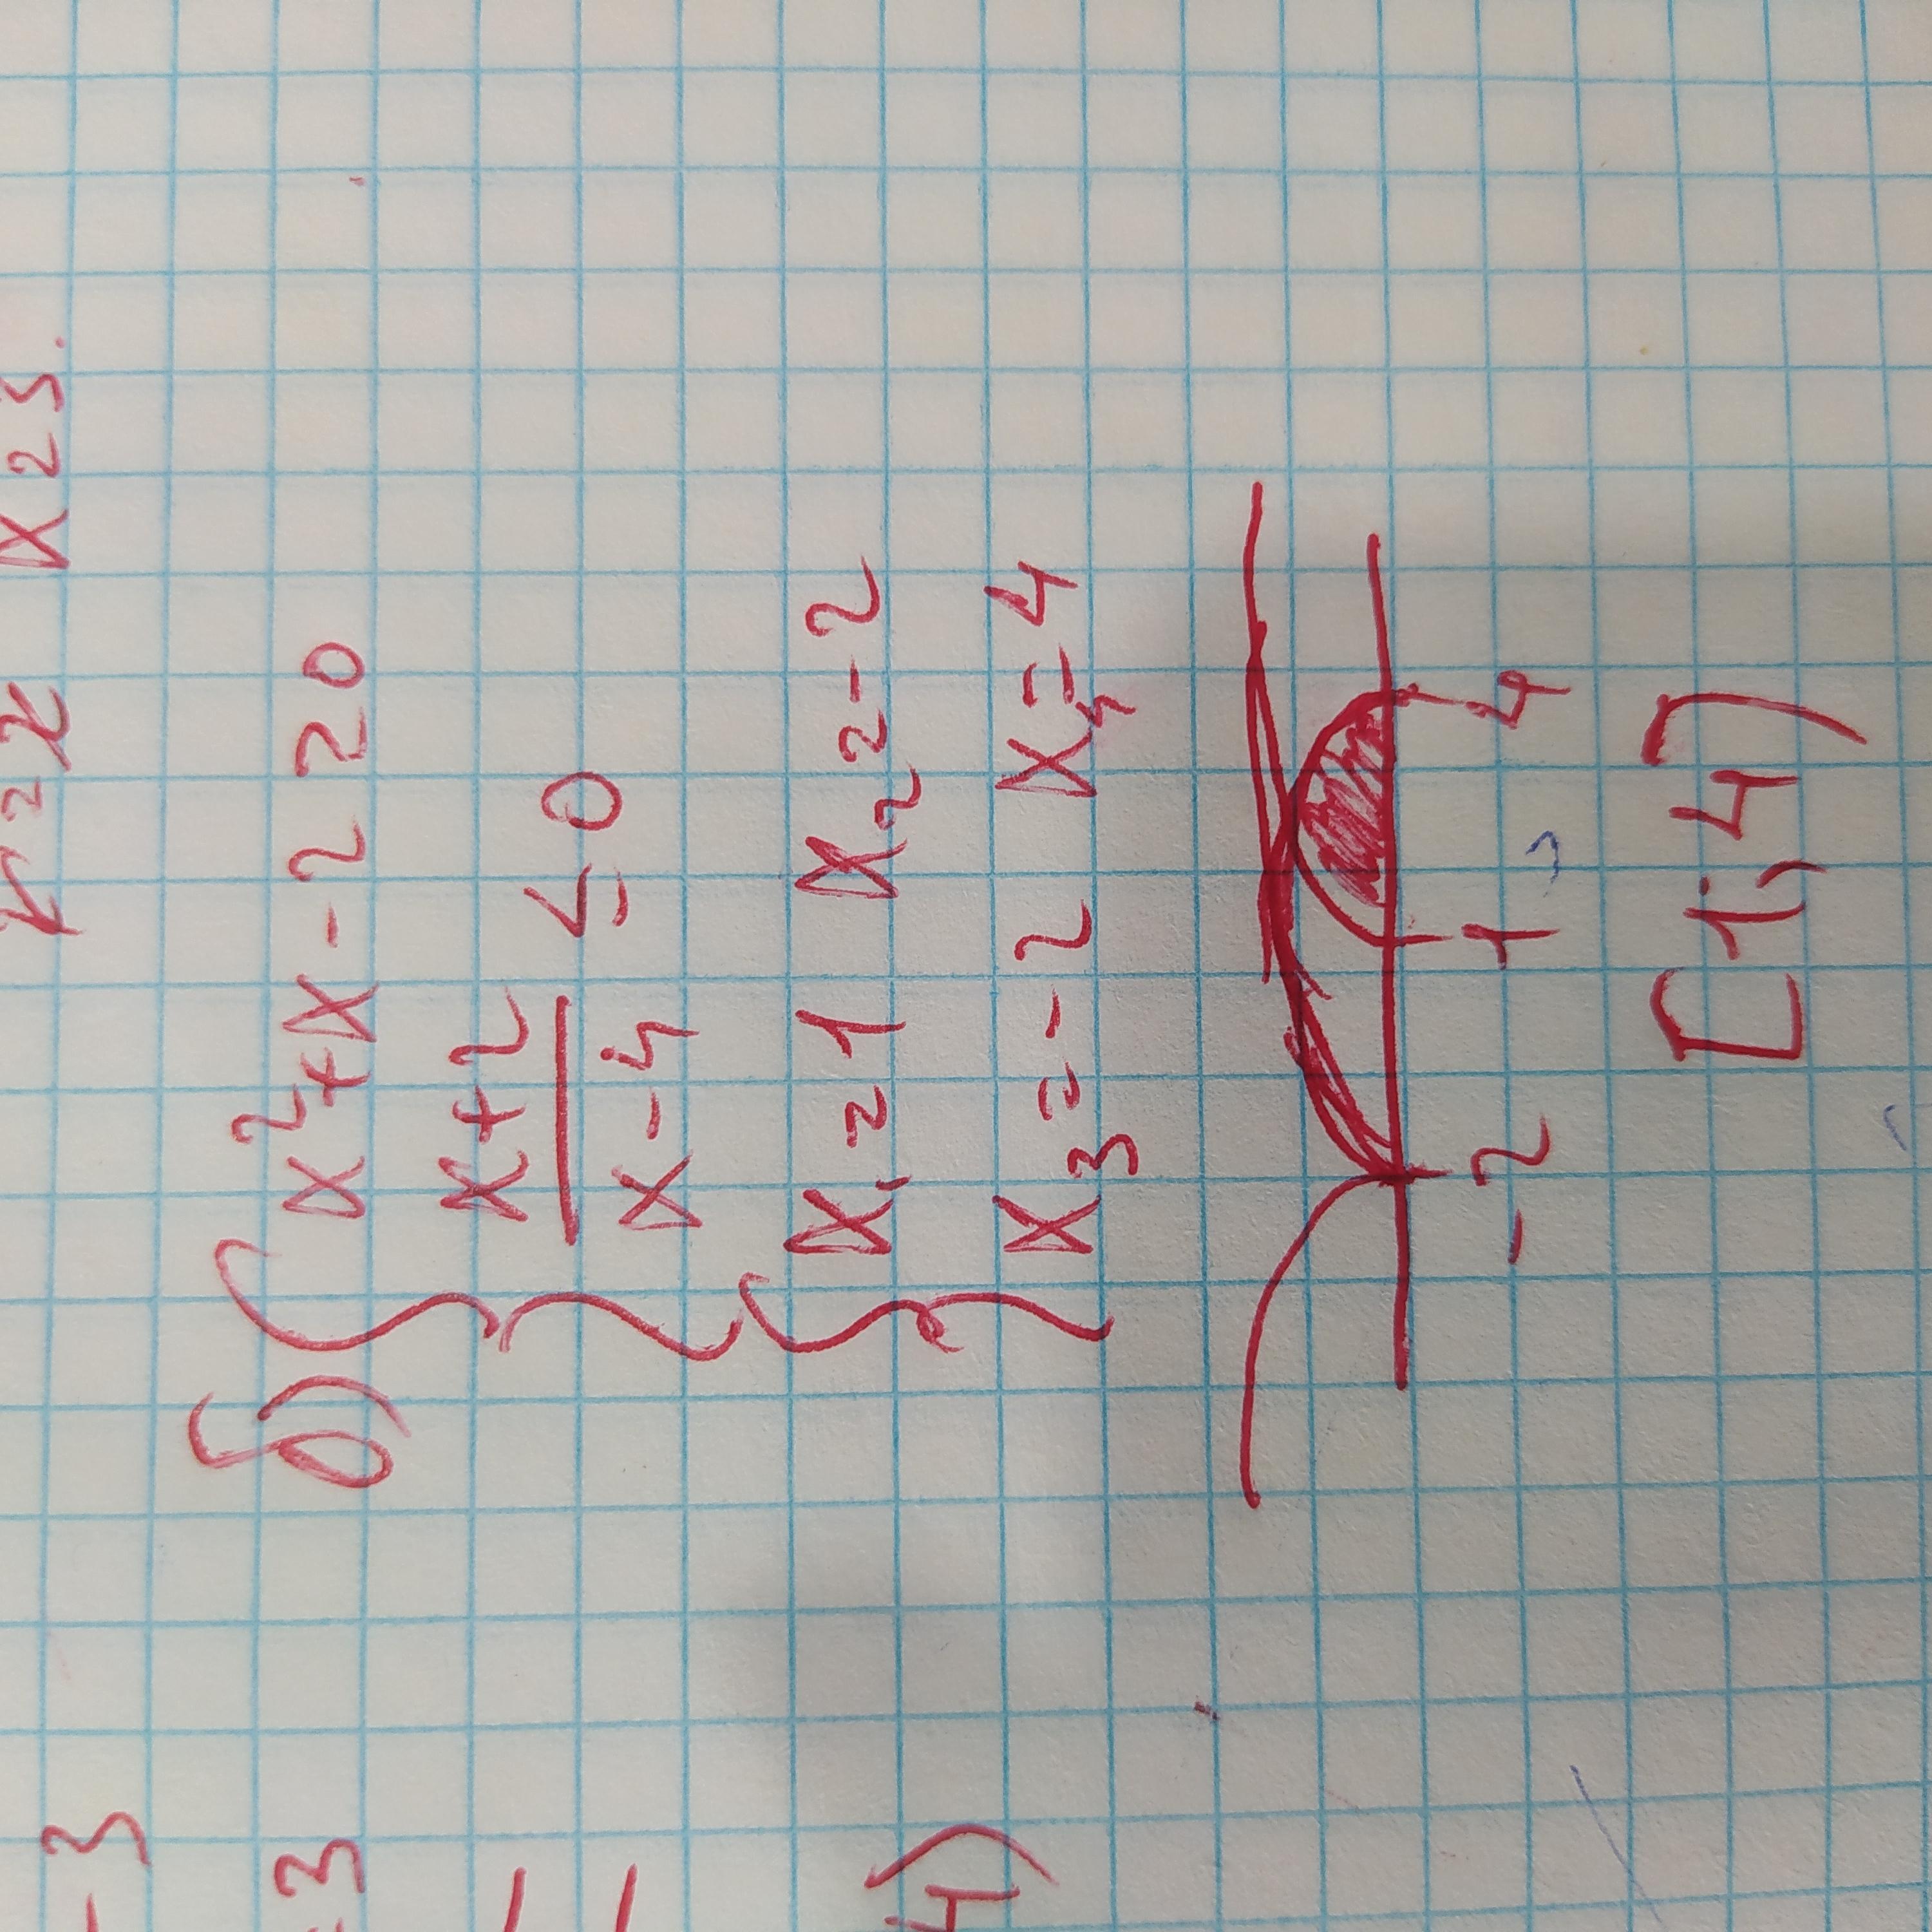 x=3.
б) { x²+x-2≥0
x+2
x-4 ≤0
{ x₁=1 x₂=-2
x₃=-2 x₄=4
-2 1 4
[1;4)
-3
4)